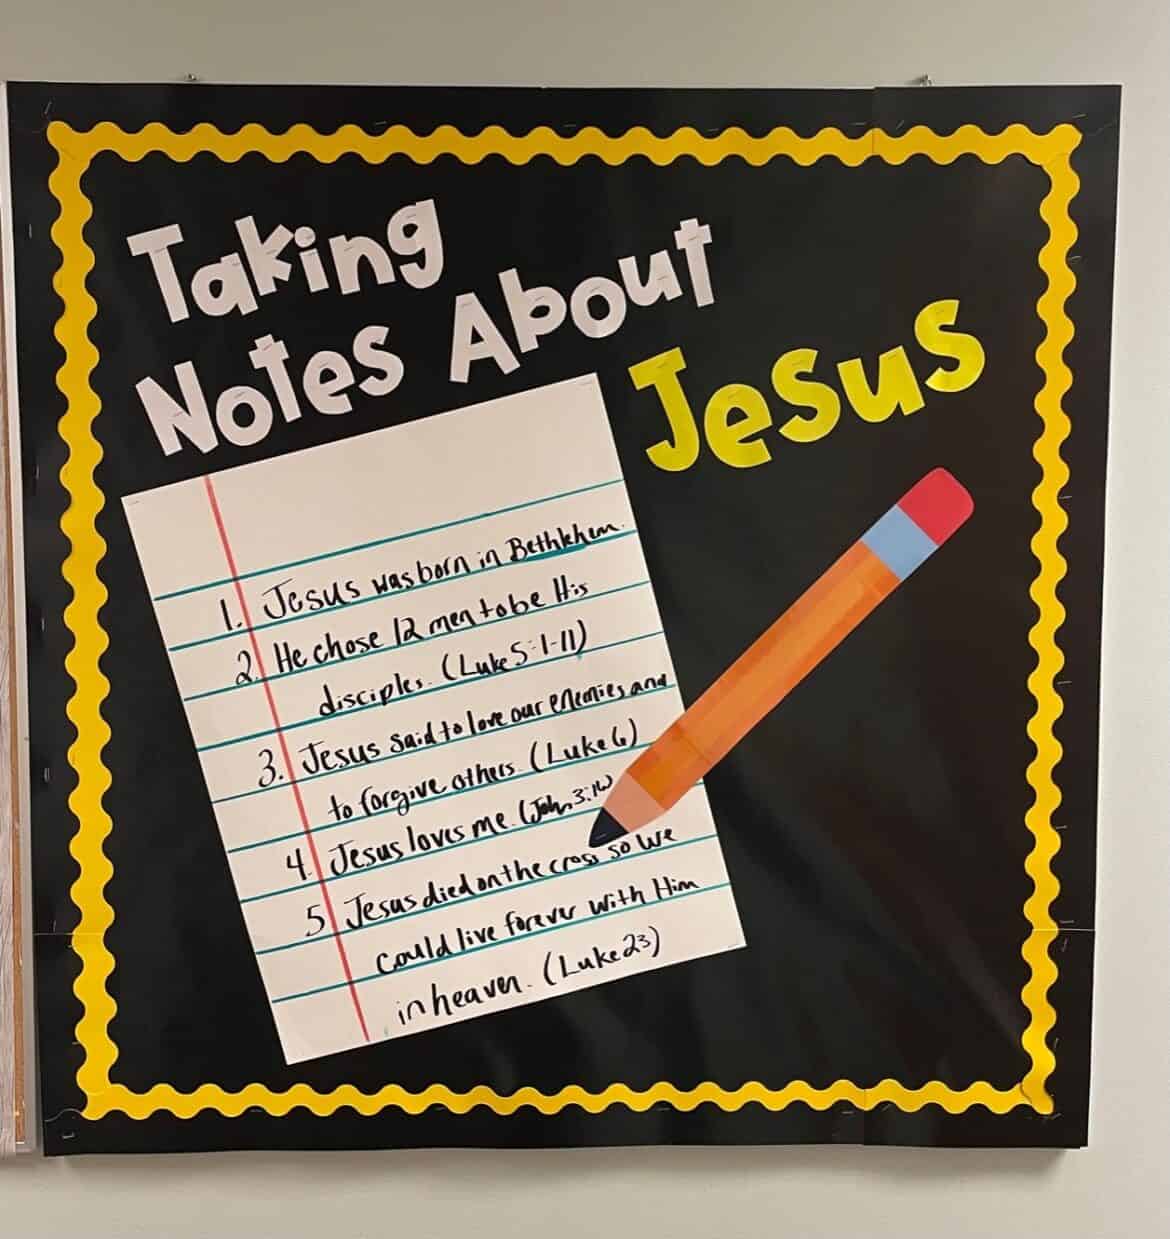 Taking
Notes About
Jesus
1. Jesus was born in Bethlehem.
2. He chose 12 men to be His
disciples. (Luke 5:1-11)
3. Jesus said to love our enemies and
to forgive others. (Luke 6)
4. Jesus loves me. (John 3:16)
5. Jesus died on the cross so we
could live forever with Him
in heaven. (Luke 23)